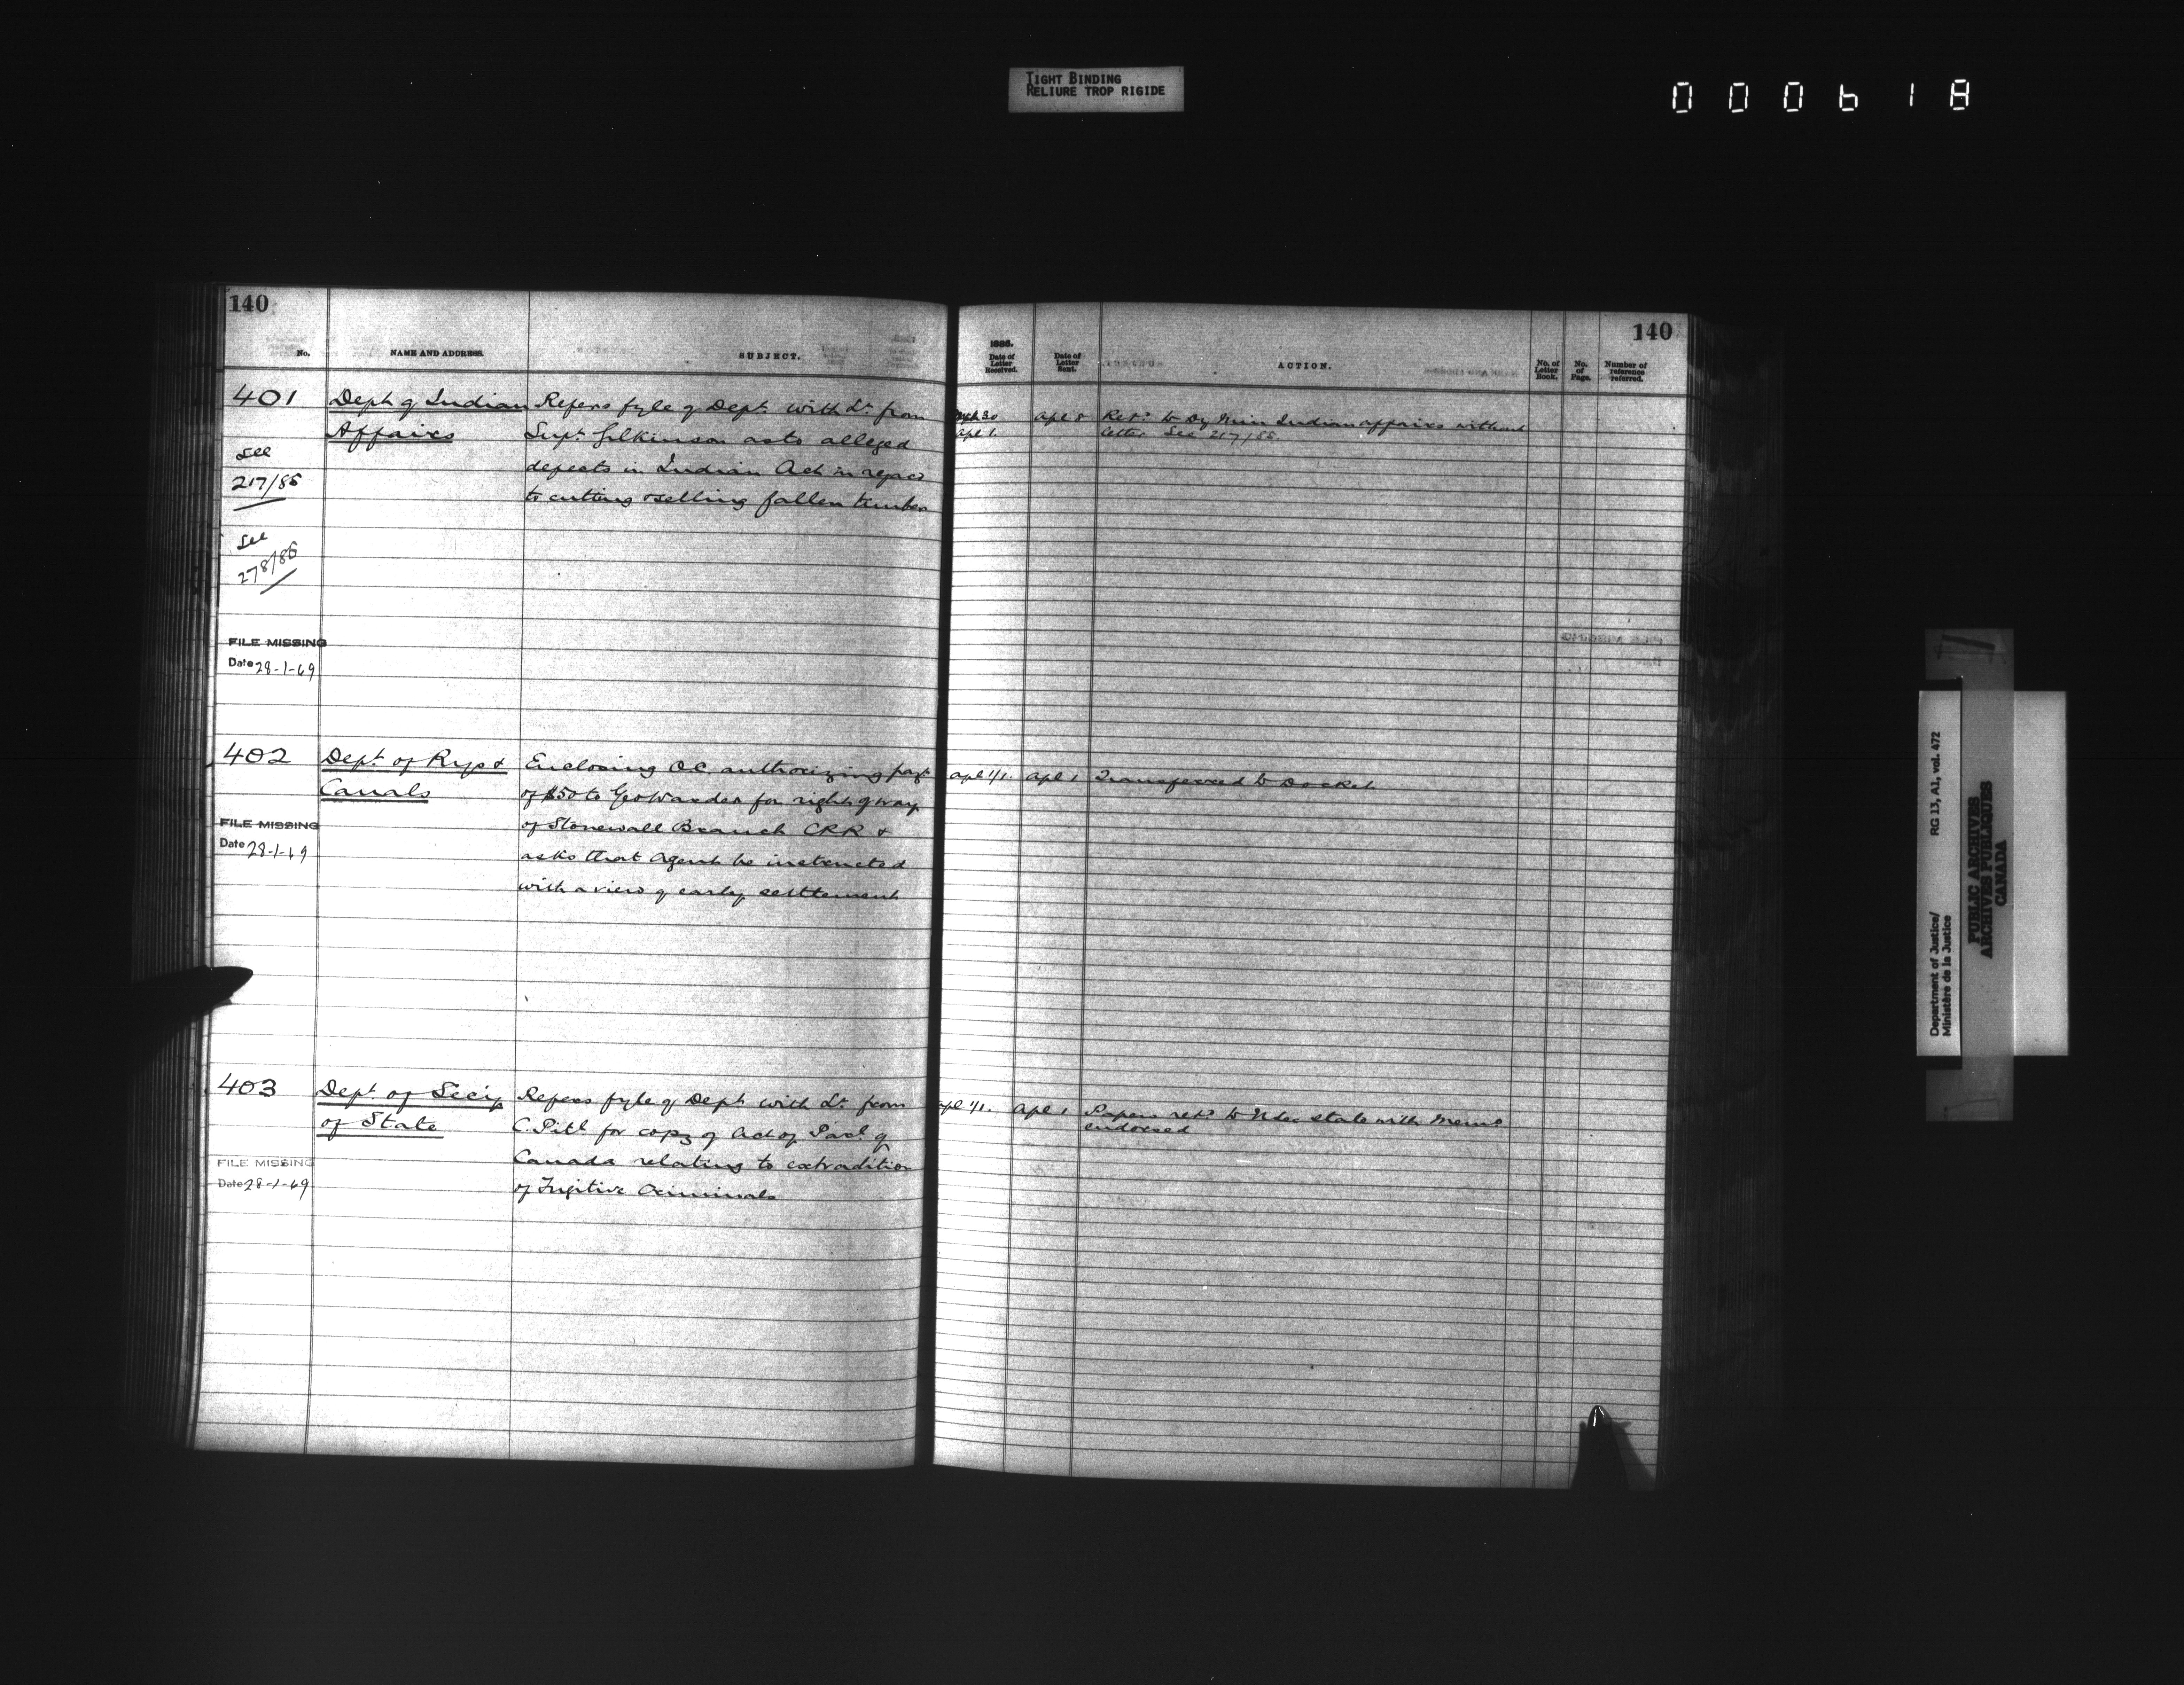 TIGHT BINDING
RELIURE TROP RIGIDE
000618
140
No.
NAME AND ADDRESS.
SUBJECT.
401
Dept of Indian
Affairs
Refers fyle of Dept. with Lr. from
Supt. Gilkinson as to alleged
defects in Indian Act in regard
to cutting & selling fallen timber
See
217/85
See
278/86
FILE MISSING
Date 28-1-69
402
Dept. of Rys &
Canals
Enclosing O.C. authorizing payt.
of $50 to Geo Warder for right of way
of Stonewall Branch CPR &
asks that agent be instructed
with a view of early settlement
FILE MISSING
Date 28-1-69
403
Dept. of Secy
of State
Refers fyle of Dept. with Lr. from
C. Pitl for copy of Act of Parl. of
Canada relating to extradition
of Fugitive Criminals
FILE MISSING
Date 28-1-69
140
1886.
Date of
Letter
Received.
Date of
Letter
Sent.
ACTION.
No. of
Letter
Book.
No.
of
Page.
Number of
reference
referred.
Mch 30
Apl 1.
Apl 8
Retd. to Dy Min Indian affairs without
letter See 217/85
Apl 1/1.
Apl 1
Transferred to Docket
Apl 1/1.
Apl 1
Papers retd. to U Sec state with memo
endorsed
Department of Justice/
Ministère de la Justice
RG 13, A1, vol. 472
PUBLIC ARCHIVES
ARCHIVES PUBLIQUES
CANADA